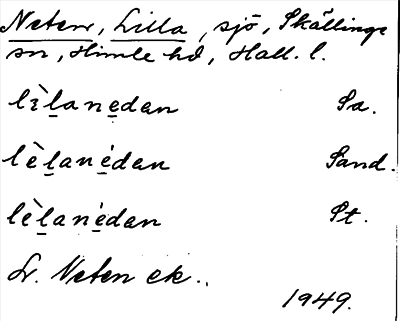 Neten, Lilla, sjö, Skällinge
sn, Himle hd, Hall. l.
lìlanedan Sa.
lèlanédan Sand.
lèlanédan St.
L. Neten ek.
1949.